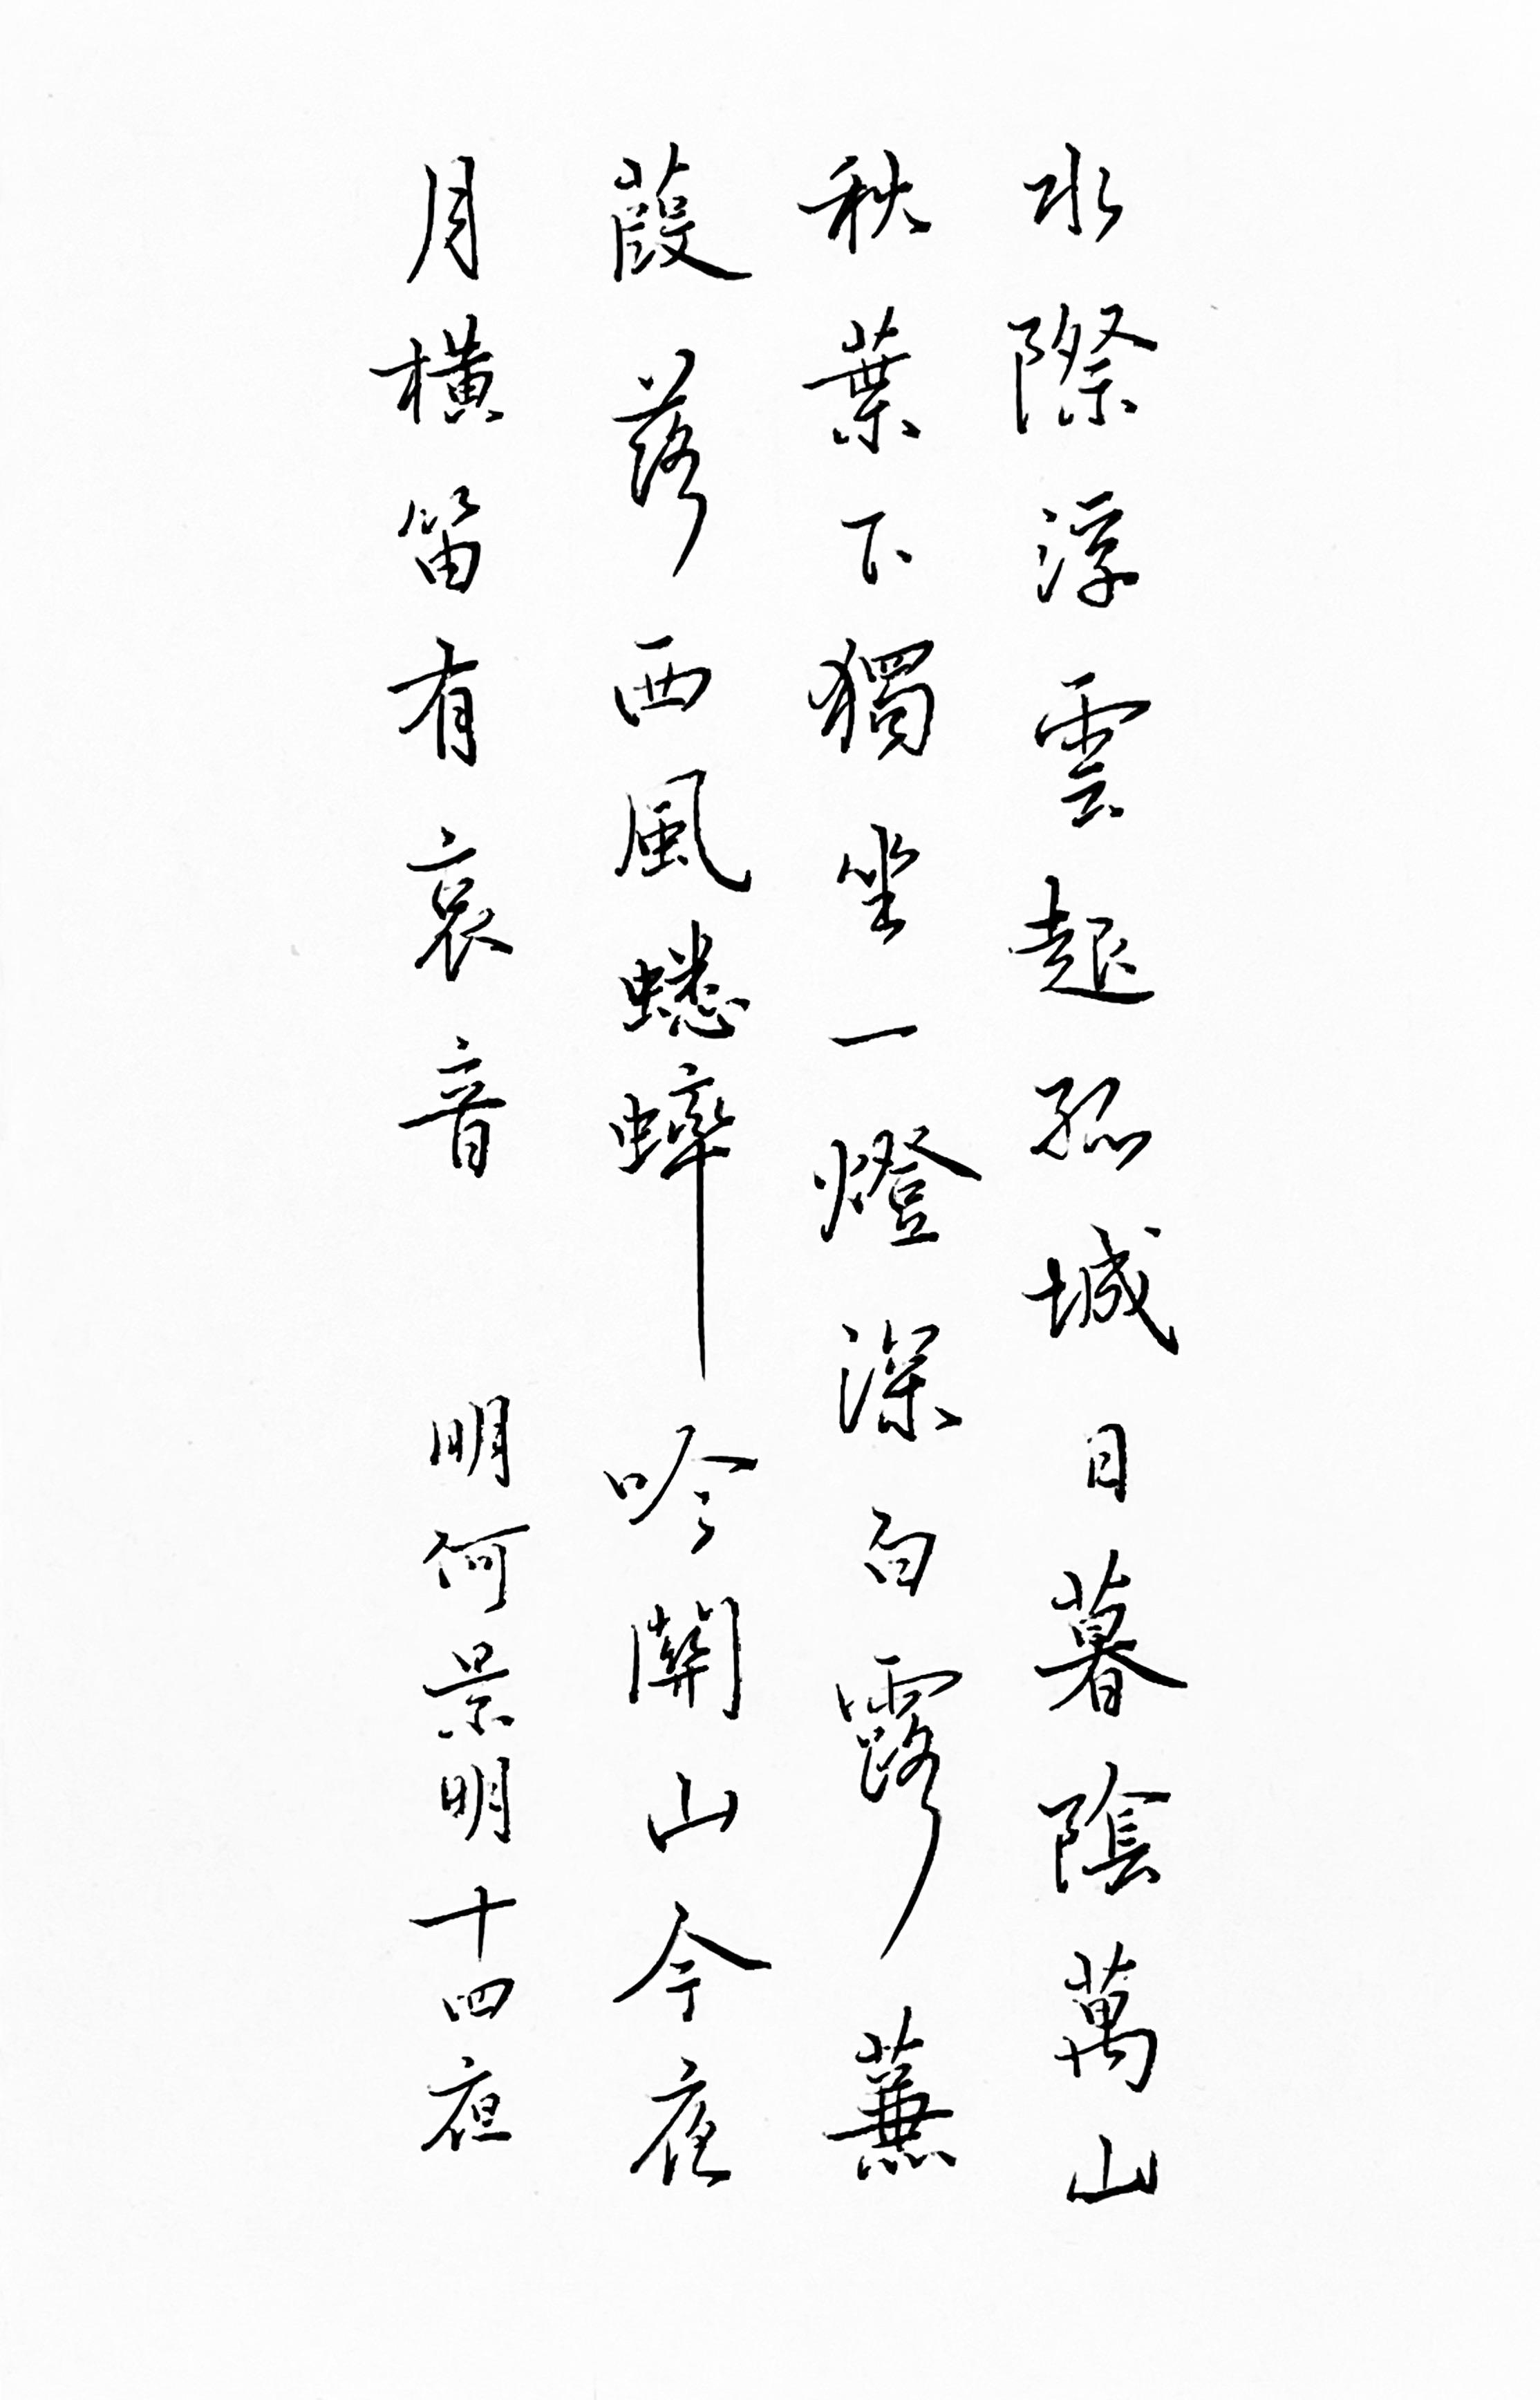 水際浮雲起孤城日暮陰萬山
秋葉下獨坐一燈深白露蒹
葭落西風蟋蟀吟關山今夜
月橫笛有哀音 明何景明十四夜